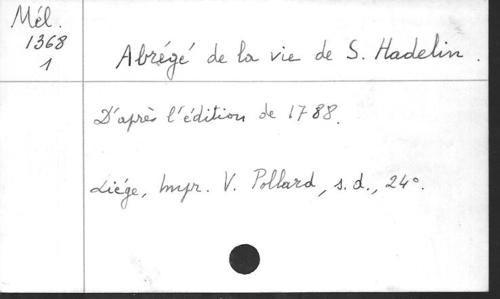 Mél.
1368
1
Abrégé de la vie de S. Hadelin.
D'après l'édition de 1788.
Liége, Impr. V. Pollard, s.d., 24°.